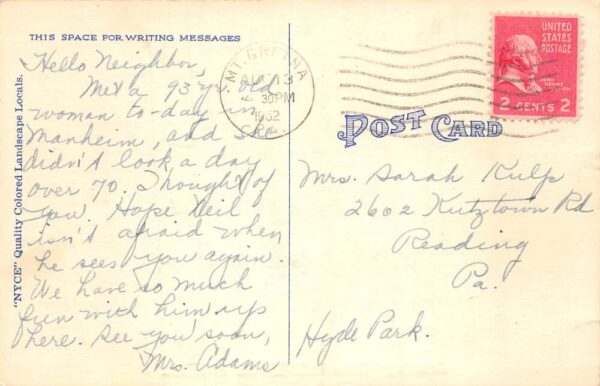 THIS SPACE FOR WRITING MESSAGES
Hello Neighbor,
Met a 93 yr. old
woman to-day in
Manheim, and she
didn't look a day
over 70. Thought of
you. Hope Neil
isn't afraid when
he sees you again.
We have so much
fun with him up
here. See you soon,
Mrs. Adams
"NYCE" Quality Colored Landscape Locals.
MT. GRETNA
AUG 13
30 PM
1952
PA.
UNITED
STATES
POSTAGE
2 CENTS 2
POST CARD
Mrs. Sarah Kulp
2602 Kutztown Rd
Reading
Pa.
Hyde Park.